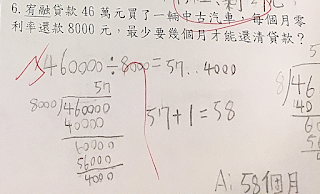 6.宥融貸款46萬元買了一輛中古汽車,每個月零
利率還款8000元,最少要幾個月才能還清貸款?
460000÷8000=57…4000
57
8000)460000
40000
60000
56000
4000
57+1=58
A:58個月